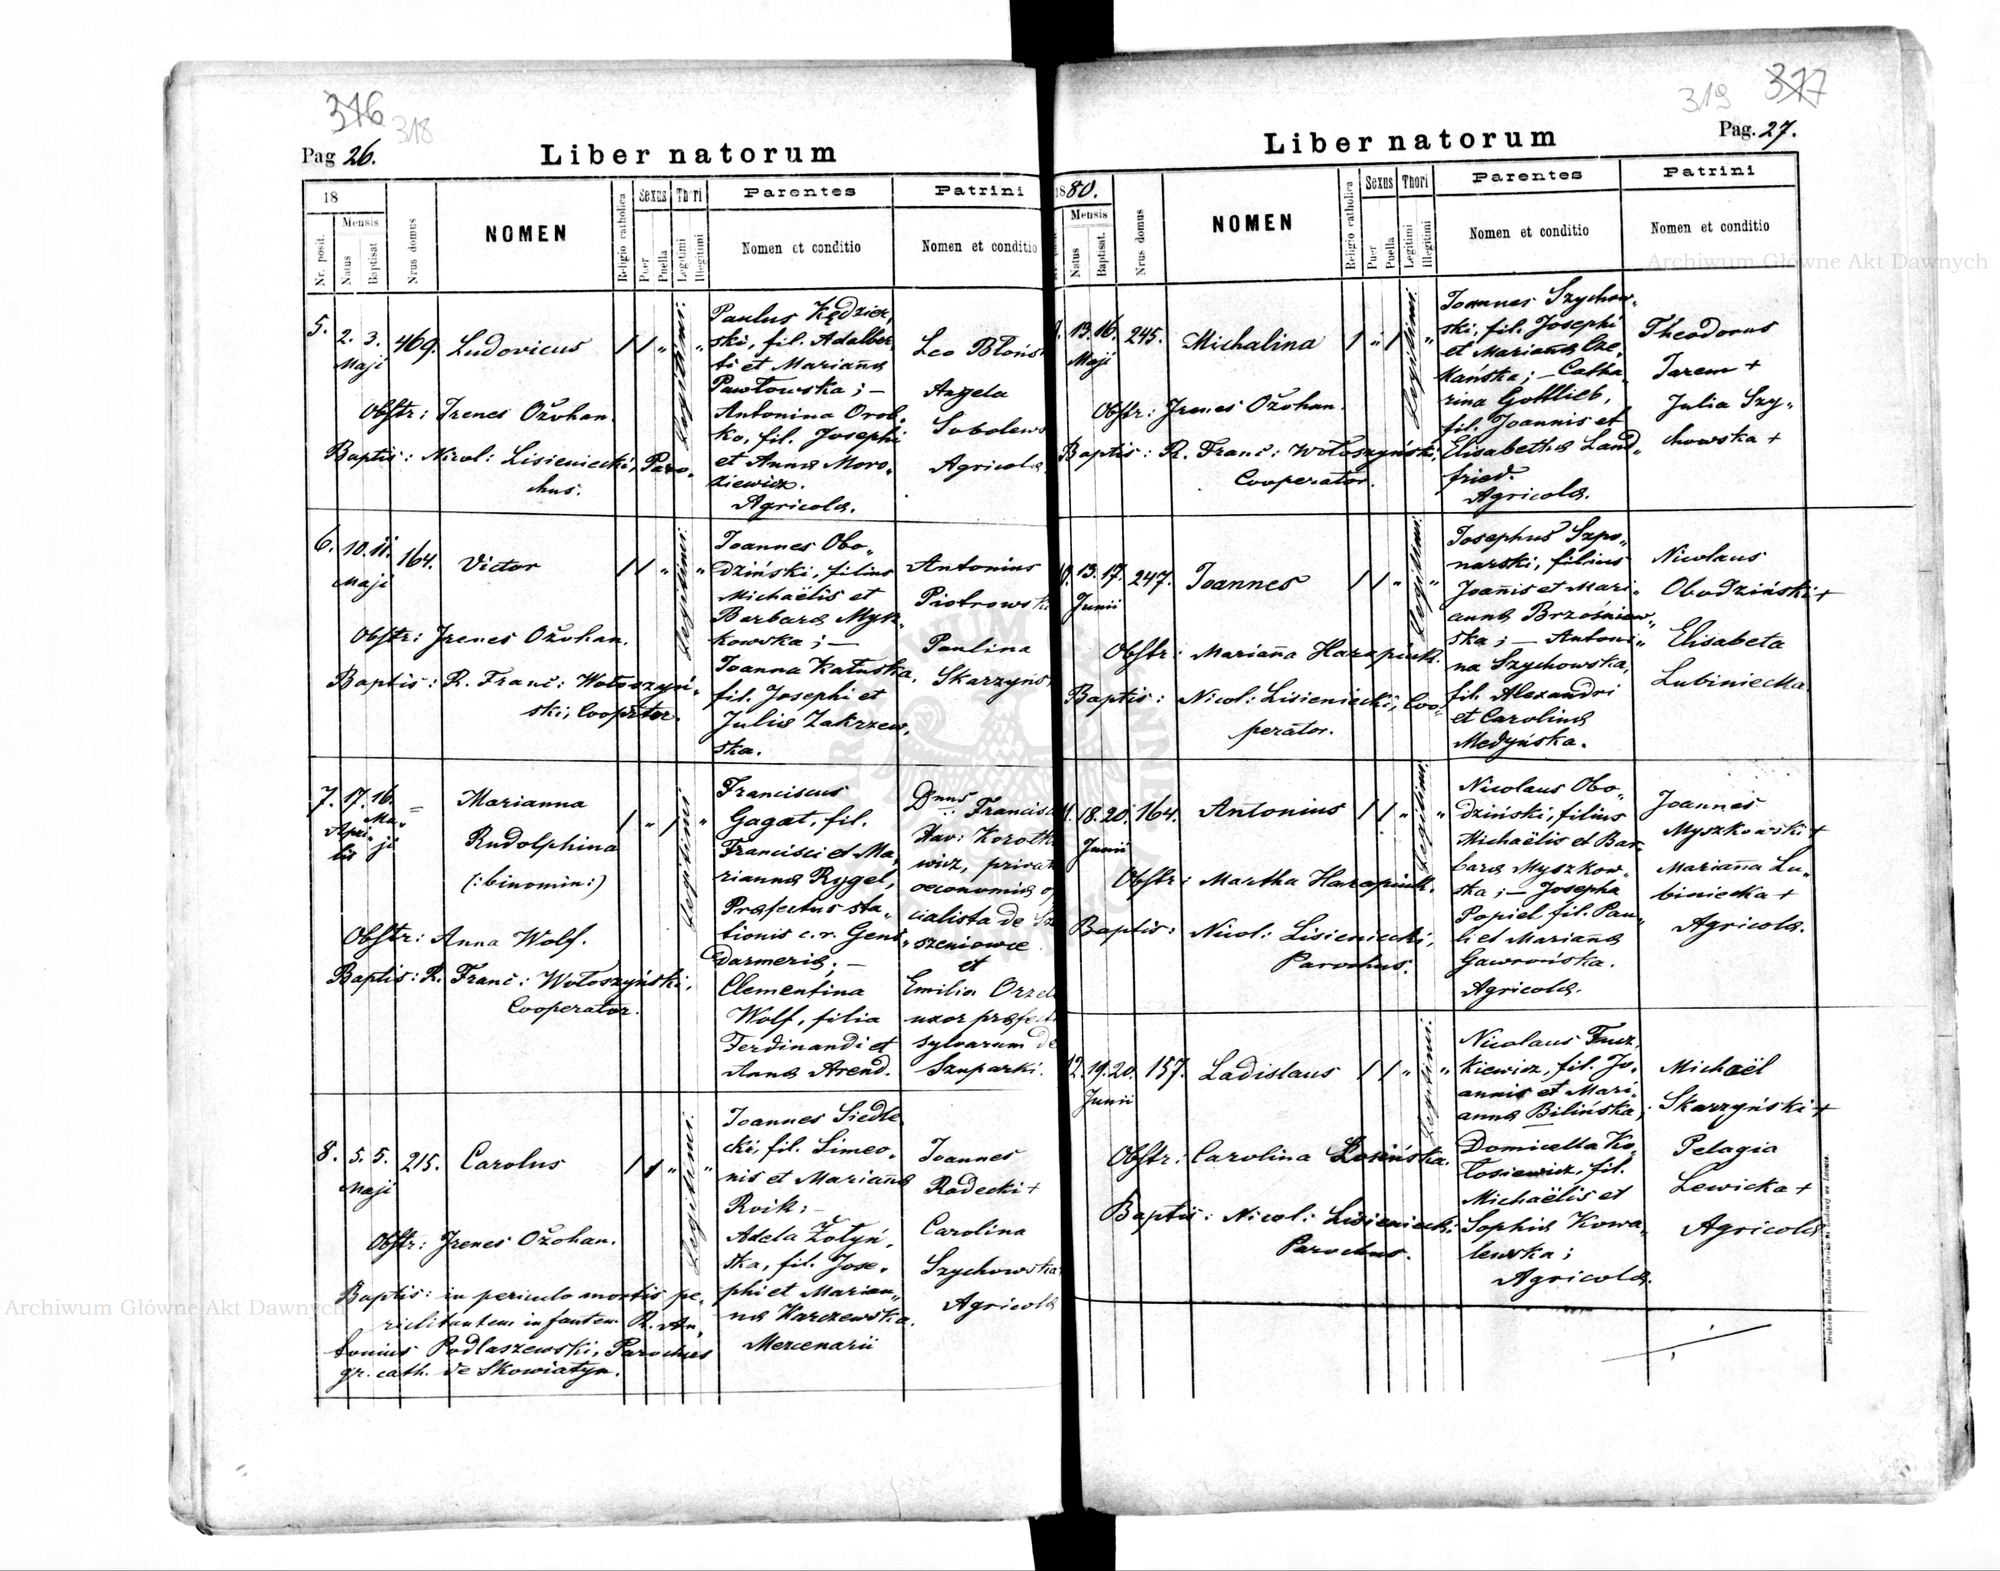 316 318
Pag 26.
Liber natorum
18
Nr. posit.
Mensis
Natus
Baptisat
Nrus domus
NOMEN
Religio catholica
Sexus
Puer
Puella
Thori
Legitimi
Illegitimi
Parentes
Nomen et conditio
Patrini
Nomen et conditio
5. 2. 3. 469. Ludovicus / / „ Legitimi. „
Maji
Obstr: Irenes Ožohan.
Baptis: Nicol: Lisieniecki, Paro„
chus.
Paulus Kędzier„
ski, fil. Adalber„
ti et Marianna
Pawłowska; —
Antonina Orob„
ko, fil. Josephi
et Anna Moro„
ziewicz.
Agricola.
Leo Błońs
Angela
Sobolews
Agricola
6. 10. 11. 164. Victor / / „ Legitimi. „
Maji
Obstr: Irenes Ožohan.
Baptis: R. Franc: Wołoszyń„
ski, Cooprtor.
Joannes Obo„
dziński, filius
Michaëlis et
Barbara Mysz„
kowska; —
Joanna Kałuska,
fil. Josephi et
Julia Zakrzew„
ska.
Antonius
Piotrowsk
Paulina
Skarzyńs
7. 17. 16. = Marianna / „ / Legitimi „
Apri„ Ma„
lis ji
Rudolphina
(:binomin:)
Obstr: Anna Wolf.
Baptis: R. Franc: Wołoszyński,
Cooperator.
Franciscus
Gagat, fil.
Francisci et Ma„
rianna Rygel,
Præfectus sta„
tionis c. r. Gens„
darmeria; —
Clementina
Wolf, filia
Ferdinandi et
Anna Arend.
Dnus Francisc
Xav: Korotk
wicz, privat
oeconomia o
cialista de Sz
szeniowce
et
Emilia Orze
uxor præfect
sylvarum de
Szuparki.
8. 5. 5. 215. Carolus / / „ Legitimi. „
Maji
Obstr: Irenes Ožohan.
Baptis: in periculo mortis pe„
riclitantem infantem R. An„
tonius Podlaszewski, Parochus
gr. cath. de Skowiatyn.
Joannes Siedle„
cki, fil. Simeo„
nis et Marianna
Roik; —
Adela Żołyń„
ska, fil. Jose„
phi et Marian„
na Karczewska.
Mercenarii
Joannes
Radecki +
Carolina
Szychowska
Agricola
319 317
Pag. 27.
Liber natorum
1880.
Mensis
Natus
Baptisat.
Nrus domus
NOMEN
Religio catholica
Sexus
Puer
Puella
Thori
Legitimi
Illegitimi
Parentes
Nomen et conditio
Patrini
Nomen et conditio
13. 16. 245. Michalina / „ / Legitimi. „
Maji
Obstr: Irenes Ožohan.
Baptis: R. Franc: Wołoszyński,
Cooperator.
Joannes Szychow„
ski, fil. Josephi
et Marianna Cze„
kańska; — Catha„
rina Gottlieb,
fil. Joannis et
Elisabetha Land„
fried.
Agricola.
Theodorus
Jarem +
Julia Szy„
chowska +
13. 17. 247. Joannes / / „ Legitimi. „
Junii
Obstr: Marianna Harapiuk.
Baptis: Nicol: Lisieniecki, Coo„
perator.
Josephus Szpo„
narski, filius
Joannis et Mari„
anna Brzośniow„
ska; — Antoni„
na Szychowska,
fil. Alexandri
et Carolina
Medyńska.
Nicolaus
Obodziński +
Elisabeta
Lubiniecka
18. 20. 164. Antonius / / „ Legitimi. „
Junii
Obstr: Martha Harapiuk.
Baptis: Nicol: Lisieniecki,
Parochus.
Nicolaus Obo„
dziński, filius
Michaëlis et Bar„
bara Myszkow„
ska; — Josepha
Popiel fil. Pau„
li et Marianna
Gawrońska.
Agricola.
Joannes
Myszkowski +
Marianna Lu„
biniecka +
Agricola.
12. 19. 20. 157. Ladislaus / / „ Legitimi. „
Junii
Obstr: Carolina Łosińska.
Baptis: Nicol: Lisieniecki
Parochus.
Nicolaus Fucz„
kiewicz, fil. Jo„
annis et Mari„
anna Bilińska;
Domicella Ko„
łosiewicz, fil.
Michaëlis et
Sophia Kowa„
lewska;
Agricola.
Michaël
Skarzyński +
Pelagia
Lewicka +
Agricola
Archiwum Główne Akt Dawnych
Archiwum Główne Akt Dawnych